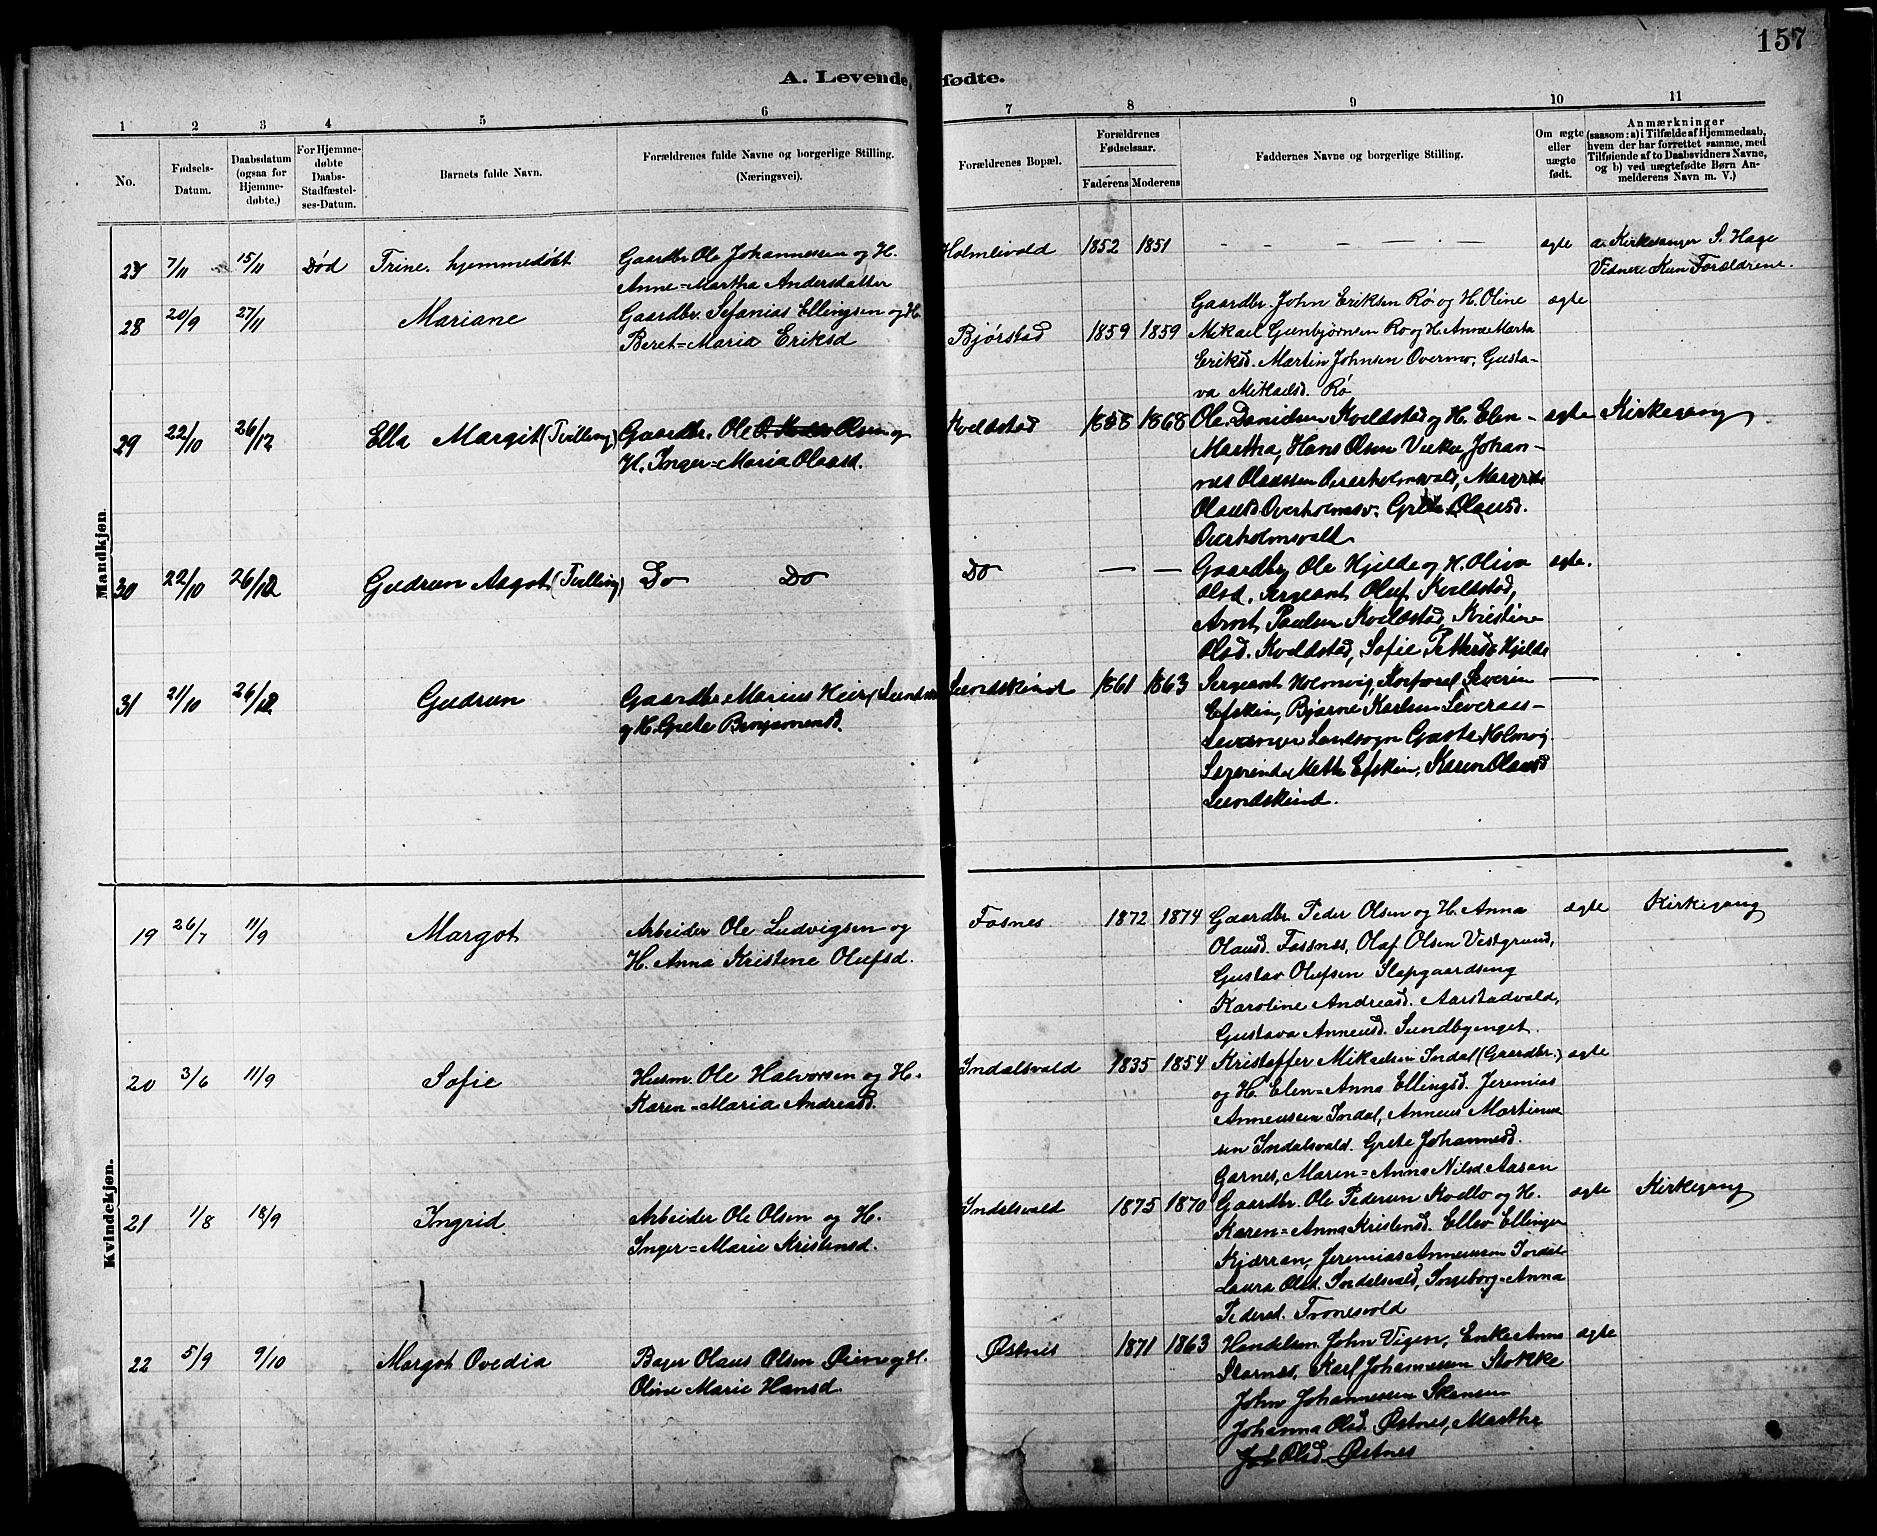 157
A. Levende fødte.
1 2 3 4 5 6 7 8 9 10 11
No.
Fødsels-
Datum.
Daabsdatum
(ogsaa for
Hjemme-
døbte.)
For Hjemme-
døbte
Daabs-
Stadfæstel-
ses-Datum.
Barnets fulde Navn.
Forældrenes fulde Navne og borgerlige Stilling.
(Næringsvei).
Forældrenes Bopæl.
Forældrenes
Fødselsaar.
Faderens Moderens
Faddernes Navne og borgerlige Stilling.
Om ægte
eller
uægte
født.
Anmærkninger
(saasom: a) i Tilfælde af Hjemmedaab,
hvem der har forrettet samme, med
Tilføiende af to Daabsvidners Navne,
og b) ved uægtefødte Børn An-
melderens Navn m. V.)
Mandkjøn.
7/11 15/11 Død Trine. hjemmedøbt
Gaardbr. Ole Johannessen og H.
Anne=Martha Andersdatter
Holmlivald 1852 1851 — — — — — — ægte
a. Kirkesanger S. Hage
Vidner: Kun Forældrene.
28 20/9 27/11 Mariane
Gaardbr. Sefanias Ellingsen og H.
Beret=Maria Eriksd
Bjørstad 1859 1859
Gaardbr. John Eriksen Rø og H. Oline ægte
Mikael Gunbjørnsen Rø og H. Anne Marta
Eriksd. Martin Johnsen Overmo, Gusta-
va Mikaelsd. Rø
29 22/10 26/12 Ella Margit (Tvilling)
Gaardbr. Ole Olsen og
H. Inger=Maria Olausd.
Kveldstad 1858 1868
Ole Danielsen Kveldstad og H. Elen- ægte Kirkegang
Martha, Hans Olsen Johan-
nes Olaussen Overholmvald,
Olausd Overholmsv. Grete Olausd.
Overholmsvald
30 22/10 26/12 Gudrun Aagot (Tvilling) Do Do Do — —
Gaardbr Ole Hjelde og H. Oliva ægte.
Olsd, Sergeant Oluf Kveldstad,
Arnt Paulsen Kveldstad, Kristine
Olsd. Kveldstad, Sofie Pettersd Hjelde
31 21/10 26/12 Gudrun
Gaardbr Marius
og H. Grete Benjamensd.
Lundskind 1861 1863
Sergeant Holmvig, Severin —
Efskin, Bjarne Karlsen
Landsogn Holmvig
Mette Efskin, Karen Olausd
Lundskind.
Kvindekjøn.
19 26/7 11/9 Margot
Arbeider Ole Ludvigsen og
H. Anna Kristine Olufsd.
Fosnes 1872 1874
Gaardbr Peder Olsen og H. Anna ægte Kirkegang
Olausd. Fossnes, Olaf Olsen Vestgrund,
Gustav Olufsen Slapgaardseng
Karoline Andreasd. Aarstadvald,
Gustava Anneusd. Sundbyenget.
20 3/6 11/9 Sofie
Husm. Ole Halvorsen og H.
Karen=Maria Andreasd.
Indalsvald 1835 1854
Kristoffer Mikaelsen Indal (Gaardbr.) ægte
og H. Elen=Anna Ellingsd. Jeremias
Anneussen Indal, Anneus Martinus
sen Indalsvald. Grete Johannesd.
Garnes, Maren=Anna Nilsd. Aasan
21 1/8 18/9 Ingrid
Arbeider Ole Olsen og H.
Inger=Marie Kristensd.
Indalsvald 1875 1870
Gaardbr. Ole Pedersen Kvello og H. ægte Kirkegang
Karen=Anna Kristensd. Ellev Ellingsen
Kjærran, Jeremias Anneussen Indal
Laura Olsd. Indalsvald, Ingeborg=Anna
Pedersd. Tronesvold
22 5/9 9/10 Margot Ovedia
Bager Olaus Olsen Øien og H.
Oline Marie Hansd.
Østnes 1871 1863
Handelsm. John Vigen, Enke Anna ægte
Karl Johannessen Stokke
John Johannessen Skansen
Johanna Olsd. Østnes, Martha
Olsd. Østnes